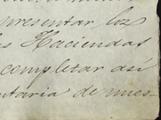 presentar los
Haciendas
completar así
ntaria de nues